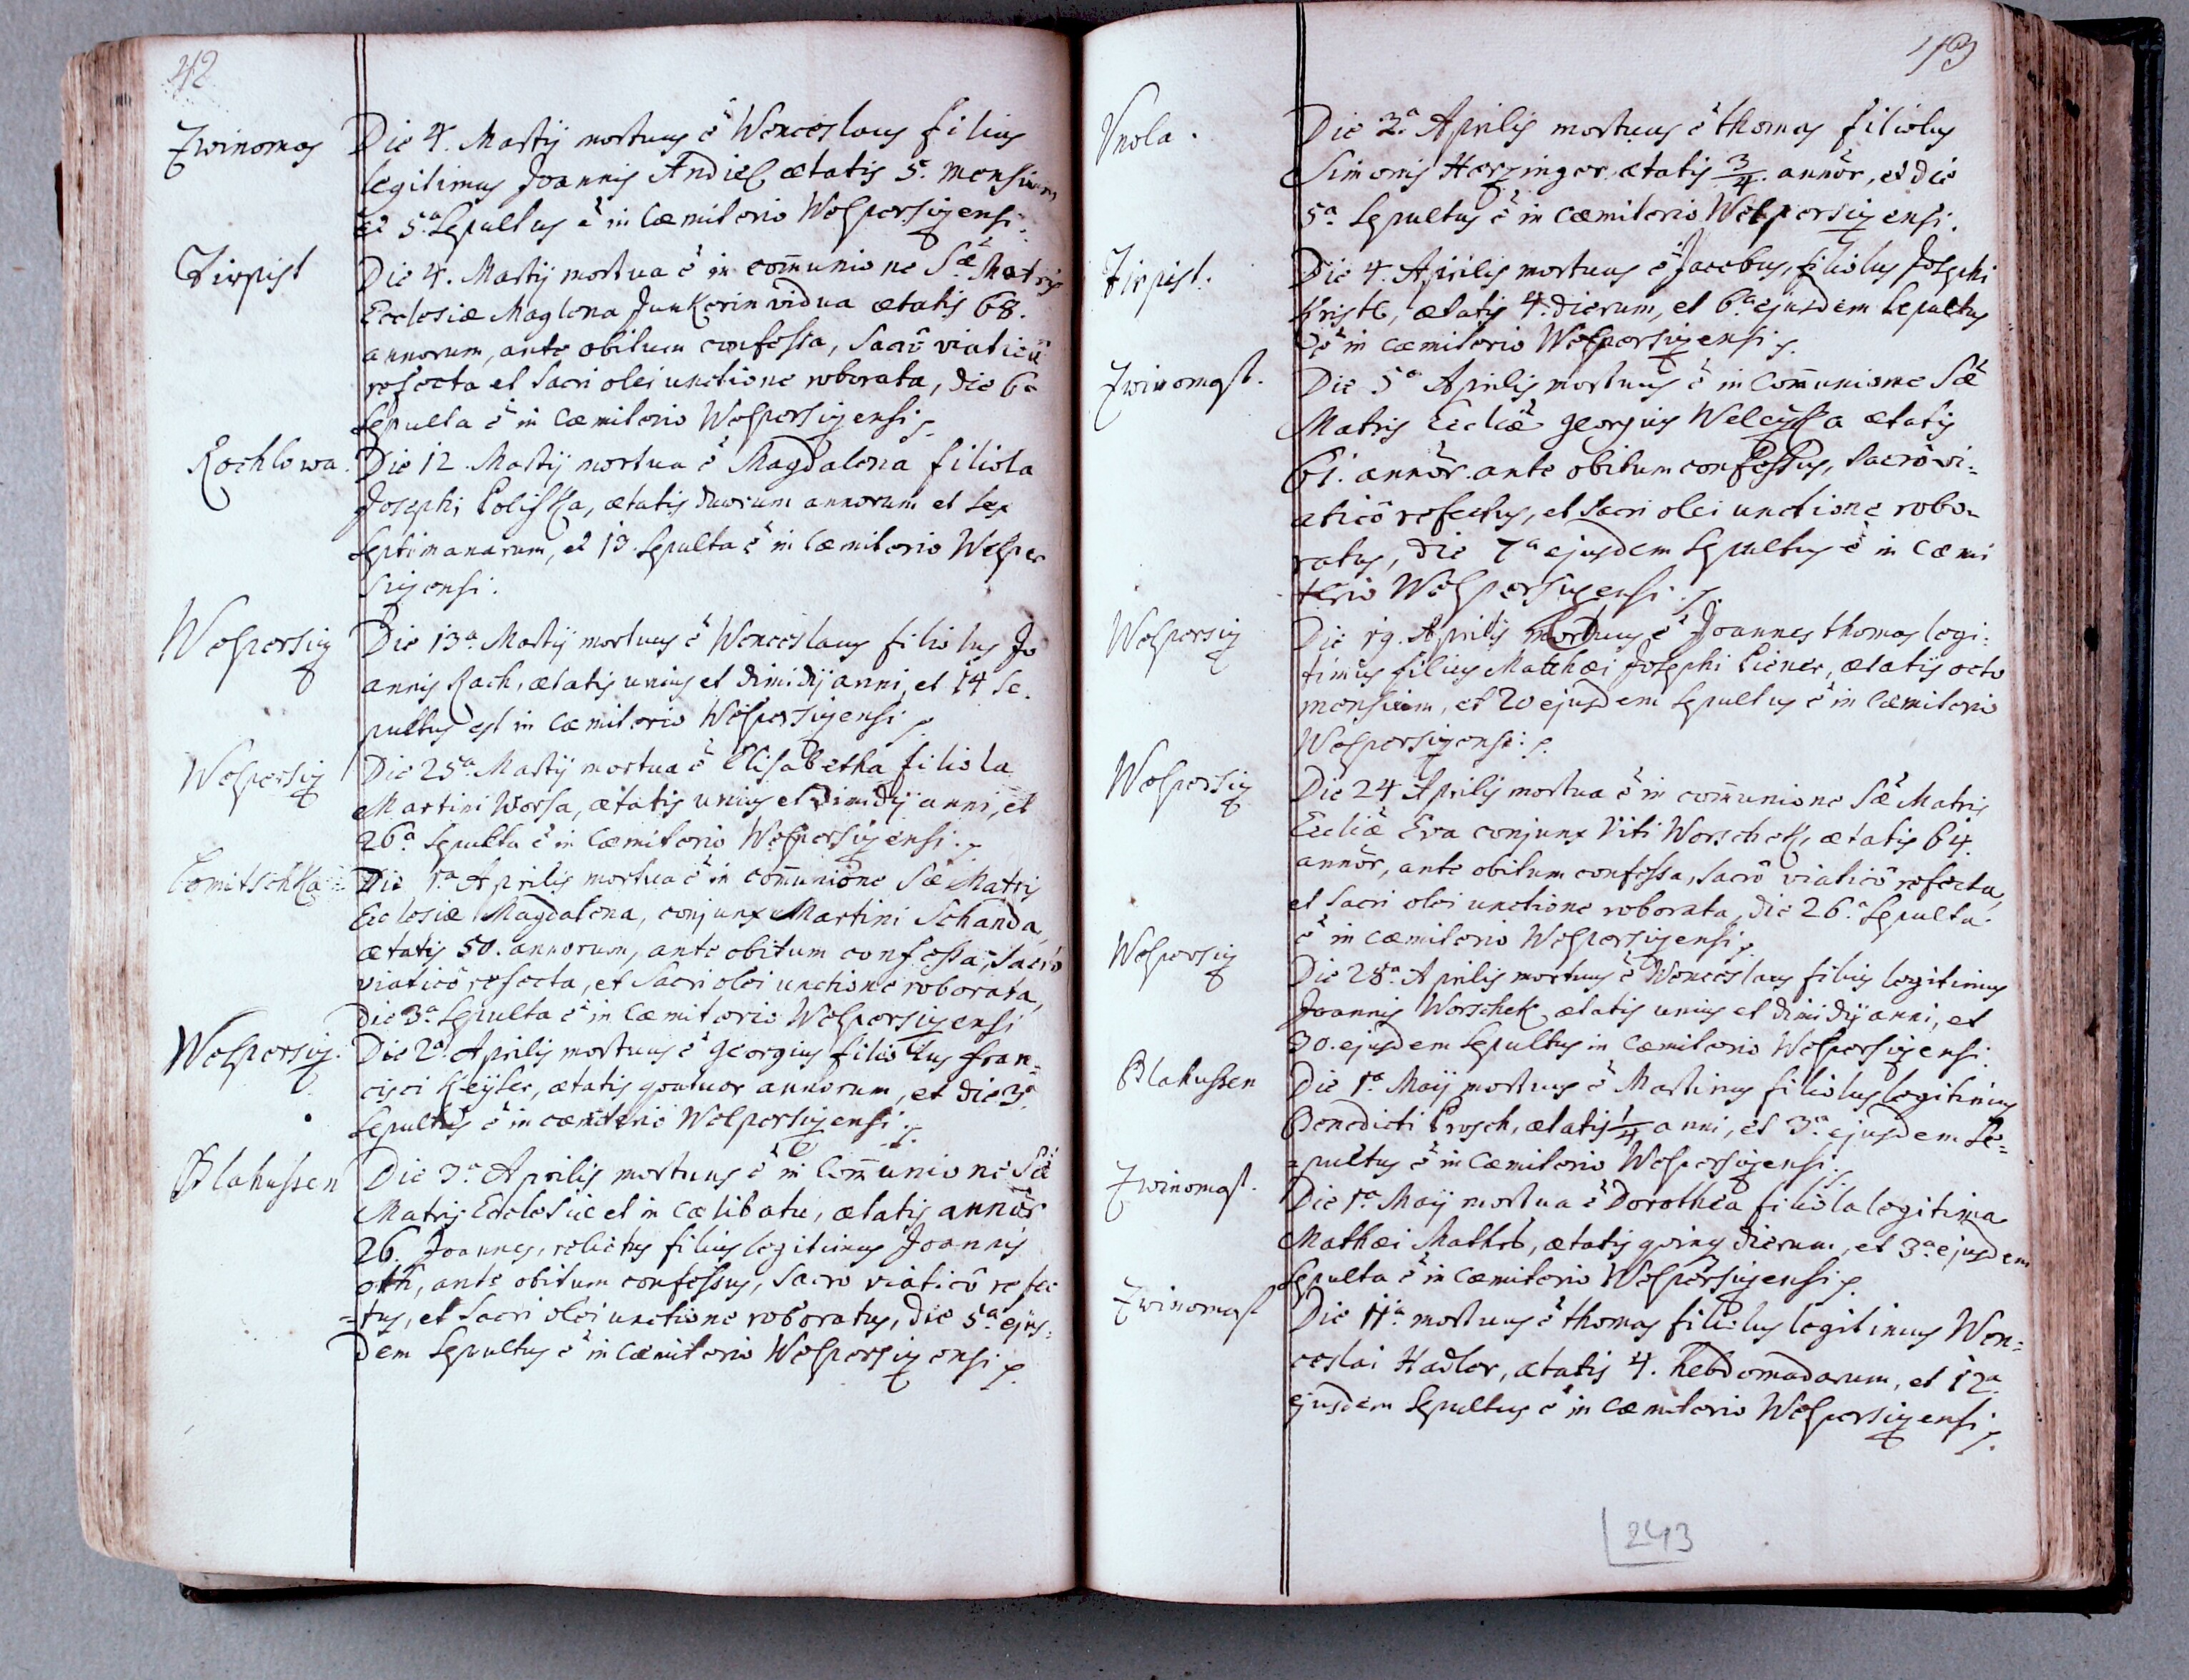 42
Zwinomas
Die 4. Martij mortuus ẽ Wenceslaus filius
legitimus Joannis Andiel ætatis 5. mensium
et 5ª Sepultus ẽ in Cæmiterio Wolpersigensi.
Tirpist
Die 4. Martij mortua ẽ in com̃unione Sæ Matris
Ecclesiæ Maglena Junkerin vidua ætatis 68.
annorum, ante obitum confessa, Sacrô viaticô
refecta et Sacri olei unctione roborata, die 6ª
Sepulta ẽ in Cæmiterio Wolpersigensi
Rochlowa.
Die 12. Martij mortua ẽ Magdalena filiola
Josephi Polifka, ætatis duorum annorum et sex
Septimanarum, et 13 Sepulta ẽ in Cæmiterio Wolper
sigensi.
Wolpersig
Die 13ª Martij mortuus ẽ Wenceslaus filiolus Jo
annis Rach, ætatis unius et dimidij anni, et 14 Se
pultus est in Cæmiterio Wolpersigensi
Wolpersig
Die 25ª Martij mortua ẽ Elisabetha filiola
Martini Worsa, ætatis unius et dimidij anni, et
26ª Sepulta ẽ in Cæmiterio Wolpersigensi.
Lomitschka
Die 1ª Aprilis mortua ẽ in com̃unione Sæ Matris
Ecclesiæ Magdalena, conjunx Martini Schanda,
ætatis 50. annorum, ante obitum confessa, Sacrô
viaticô refecta, et Sacri olei unctione roborata,
Die 3ª Sepulta ẽ in Cæmiterio Wolpersigensi
Wolpersig.
Die 2ª Aprilis mortuus ẽ Georgius filiolus Fran=
cisci Keÿser, ætatis quatuor annorum, et die 3ª
Sepultus ẽ in cæmiterio Wolpersigensi
Blahussen
Die 3ª Aprilis mortuus ẽ in Com̃unione Sæ
Matris Ecclesiæ et in Cælibatu, ætatis annôr
26. Joannes, relictus filius legitimus Joannis
oth, ante obitum confessus, Sacro viaticô refec
=tus, et Sacri olei unctione roboratus, die 5ª ejus=
dem Sepultus ẽ in Cæmiterio Wolpersigensi
193
Vnola.
Die 3ª Aprilis mortuus ẽ thomas filiolus
Simonis Herzinger, ætatis 3/4. annôr, et die
5ª Sepultus ẽ in cæmiterio Wolpersigensi.
Tirpist.
Die 4. Aprilis mortuus ẽ Jacobus, filiolus Josephi
Kristl, ætatis 4. dierum, et 6ª ejusdem Sepultus
ẽ in cæmiterio Wolpersigensi
Zwinomast.
Die 5ª Aprilis mortuus ẽ in Com̃unione Sæ
Matris Eccliæ Georgius Welcžka ætatis
61. annôr. ante obitum confessus, Sacrô vi=
aticô refectus, et Sacri olei unctione robo=
ratus, die 7ª ejusdem Sepultus ẽ in Cæmi
terio Wolpersigensi
Wolpersig
Die 19. Aprilis mortuus ẽ Joannes thomas legi=
timus filius Matthæi Josephi Piener, ætatis octo
mensium, et 20 ejusdem Sepultus ẽ in Cæmiterio
Wolpersigensi
Wolpersig
Die 24 Aprilis mortua ẽ in com̃unione Sæ Matris
Eccliæ Eva conjunx Viti Worschek, ætatis 64.
annôr, ante obitum confessa, Sacrô viaticô refecta,
et Sacri olei unctione roborata, die 26ª Sepulta
ẽ in cæmiterio Wolpersigensi
Wolpersig
Die 28ª Aprilis mortuus ẽ Wenceslaus filius legitimus
Joannis Worschek, ætatis unius et dimidij anni, et
30. ejusdem Sepultus in Cæmiterio Wolpersigensi
Blahussen
Die 1ª Maij mortuus ẽ Martinus filiolus legitimus
Benedicti Prosch, ætatis 1/4 anni, et 3ª ejusdem Se=
=pultus ẽ in Cæmiterio Wolpersigensi.
Zwinomast.
Die 1ª Maij mortua ẽ Dorothea filiola legitima
Mathæi Mathes, ætatis quinq dierum, et 3ª ejusdem
Sepulta ẽ in Cæmiterio Wolpersigensi
Zwinomast
Die 11ª mortuus ẽ thomas filiolus legitimus Wen=
ceslai Hadler, ætatis 4. hebdomadarum, et 12ª
ejusdem Sepultus ẽ in Cæmiterio Wolpersigensi
243